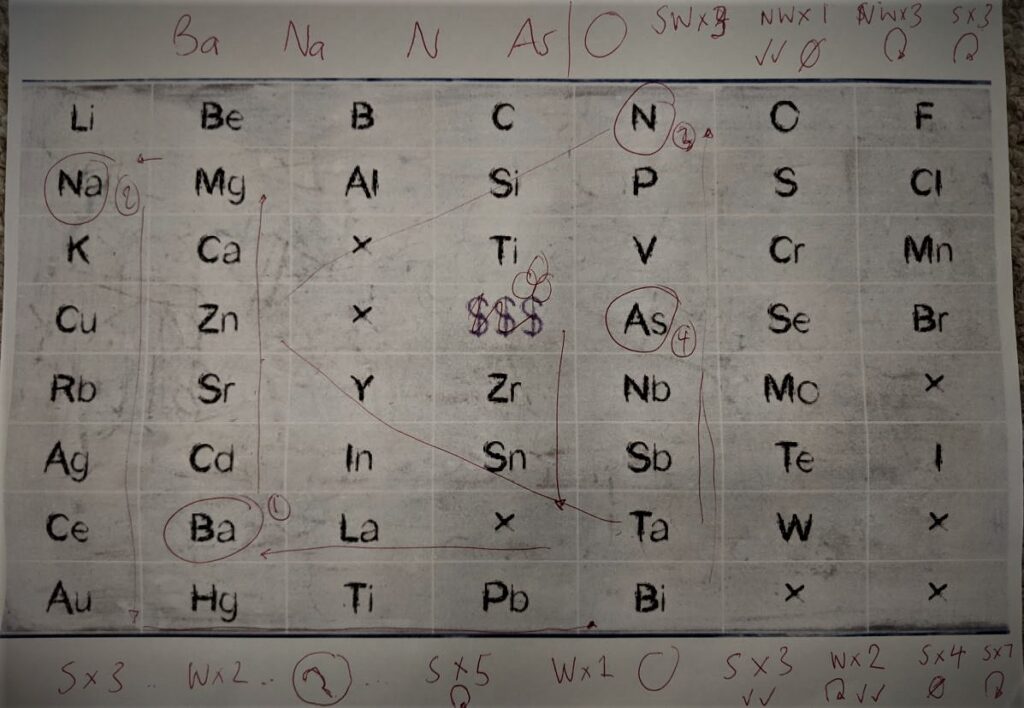 Ba Na N As O SW x 3 NW x 1 NW x 3 S x 3
Li Be B C N O F
Na Mg Al Si P S Cl
K Ca × Ti V Cr Mn
Cu Zn × $$$ As Se Br
Rb Sr Y Zr Nb Mo ×
Ag Cd In Sn Sb Te I
Ce Ba La × Ta W ×
Au Hg Ti Pb Bi × ×
S x 3 .. W x 2 .. ? ... S x 5 W x 1 O S x 3 W x 2 S x 4 S x 7